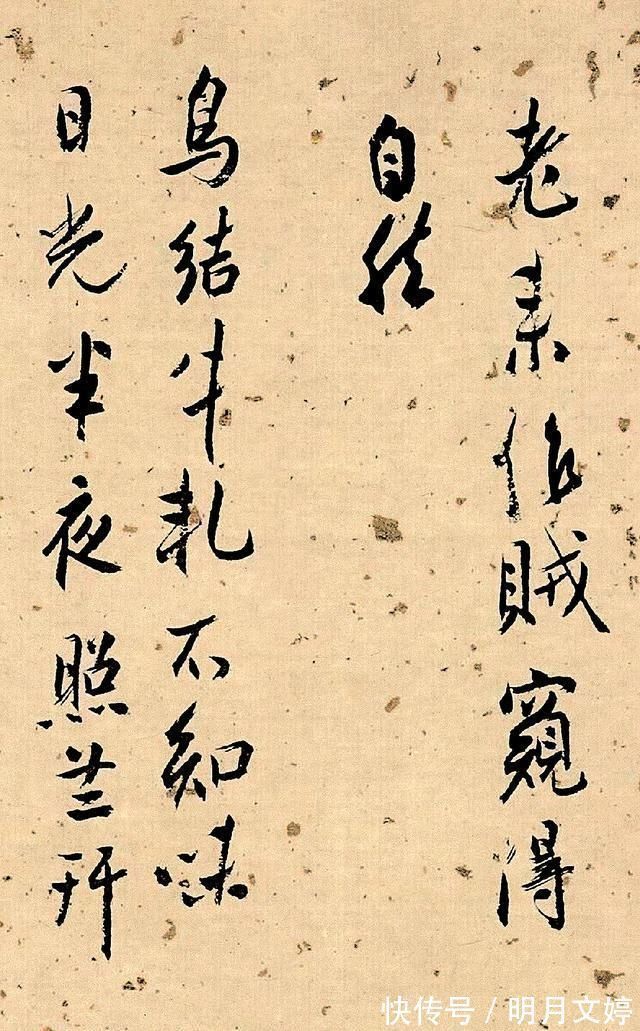 老来作賊窺得
自然
鸟结牛不知味
日光半夜照兰
快传号/明月文婷